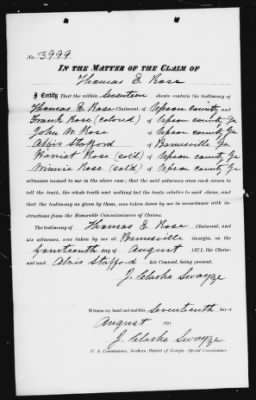 No. 3999
IN THE MATTER OF THE CLAIM OF
Thomas E Rose
I Certify That the within Seventeen sheets contain the testimony of
Thomas E Rose Claimant, of Upson county and
Frank Rose (colored) of Upson county Ga
John W Rose of Upson county Ga
Alvis Stafford of Barnesville Ga
Harriet Rose (col'd) of Upson county Ga
Winnie Rose (col'd) of Upson county Ga
witnesses named to me in the above case; that the said witnesses were each sworn to
tell the truth, the whole truth and nothing but the truth relative to said claim, and
that the testimony as given by them, was taken down by me in accordance with in-
structions from the Honorable Commissioners of Claims.
The testimony of Thomas E Rose Claimant, and
his witnesses, was taken by me at Barnesville Georgia, on the
fourteenth day of August 187, the Claim-
and Alvis Stafford his Counsel, being present.
J. Clarke Swayze
Witness my hand and seal this Seventeenth day of
August 187
J. Clarke Swayze
U. S. Commissioner, Northern District of Georgia—Special Commissioner